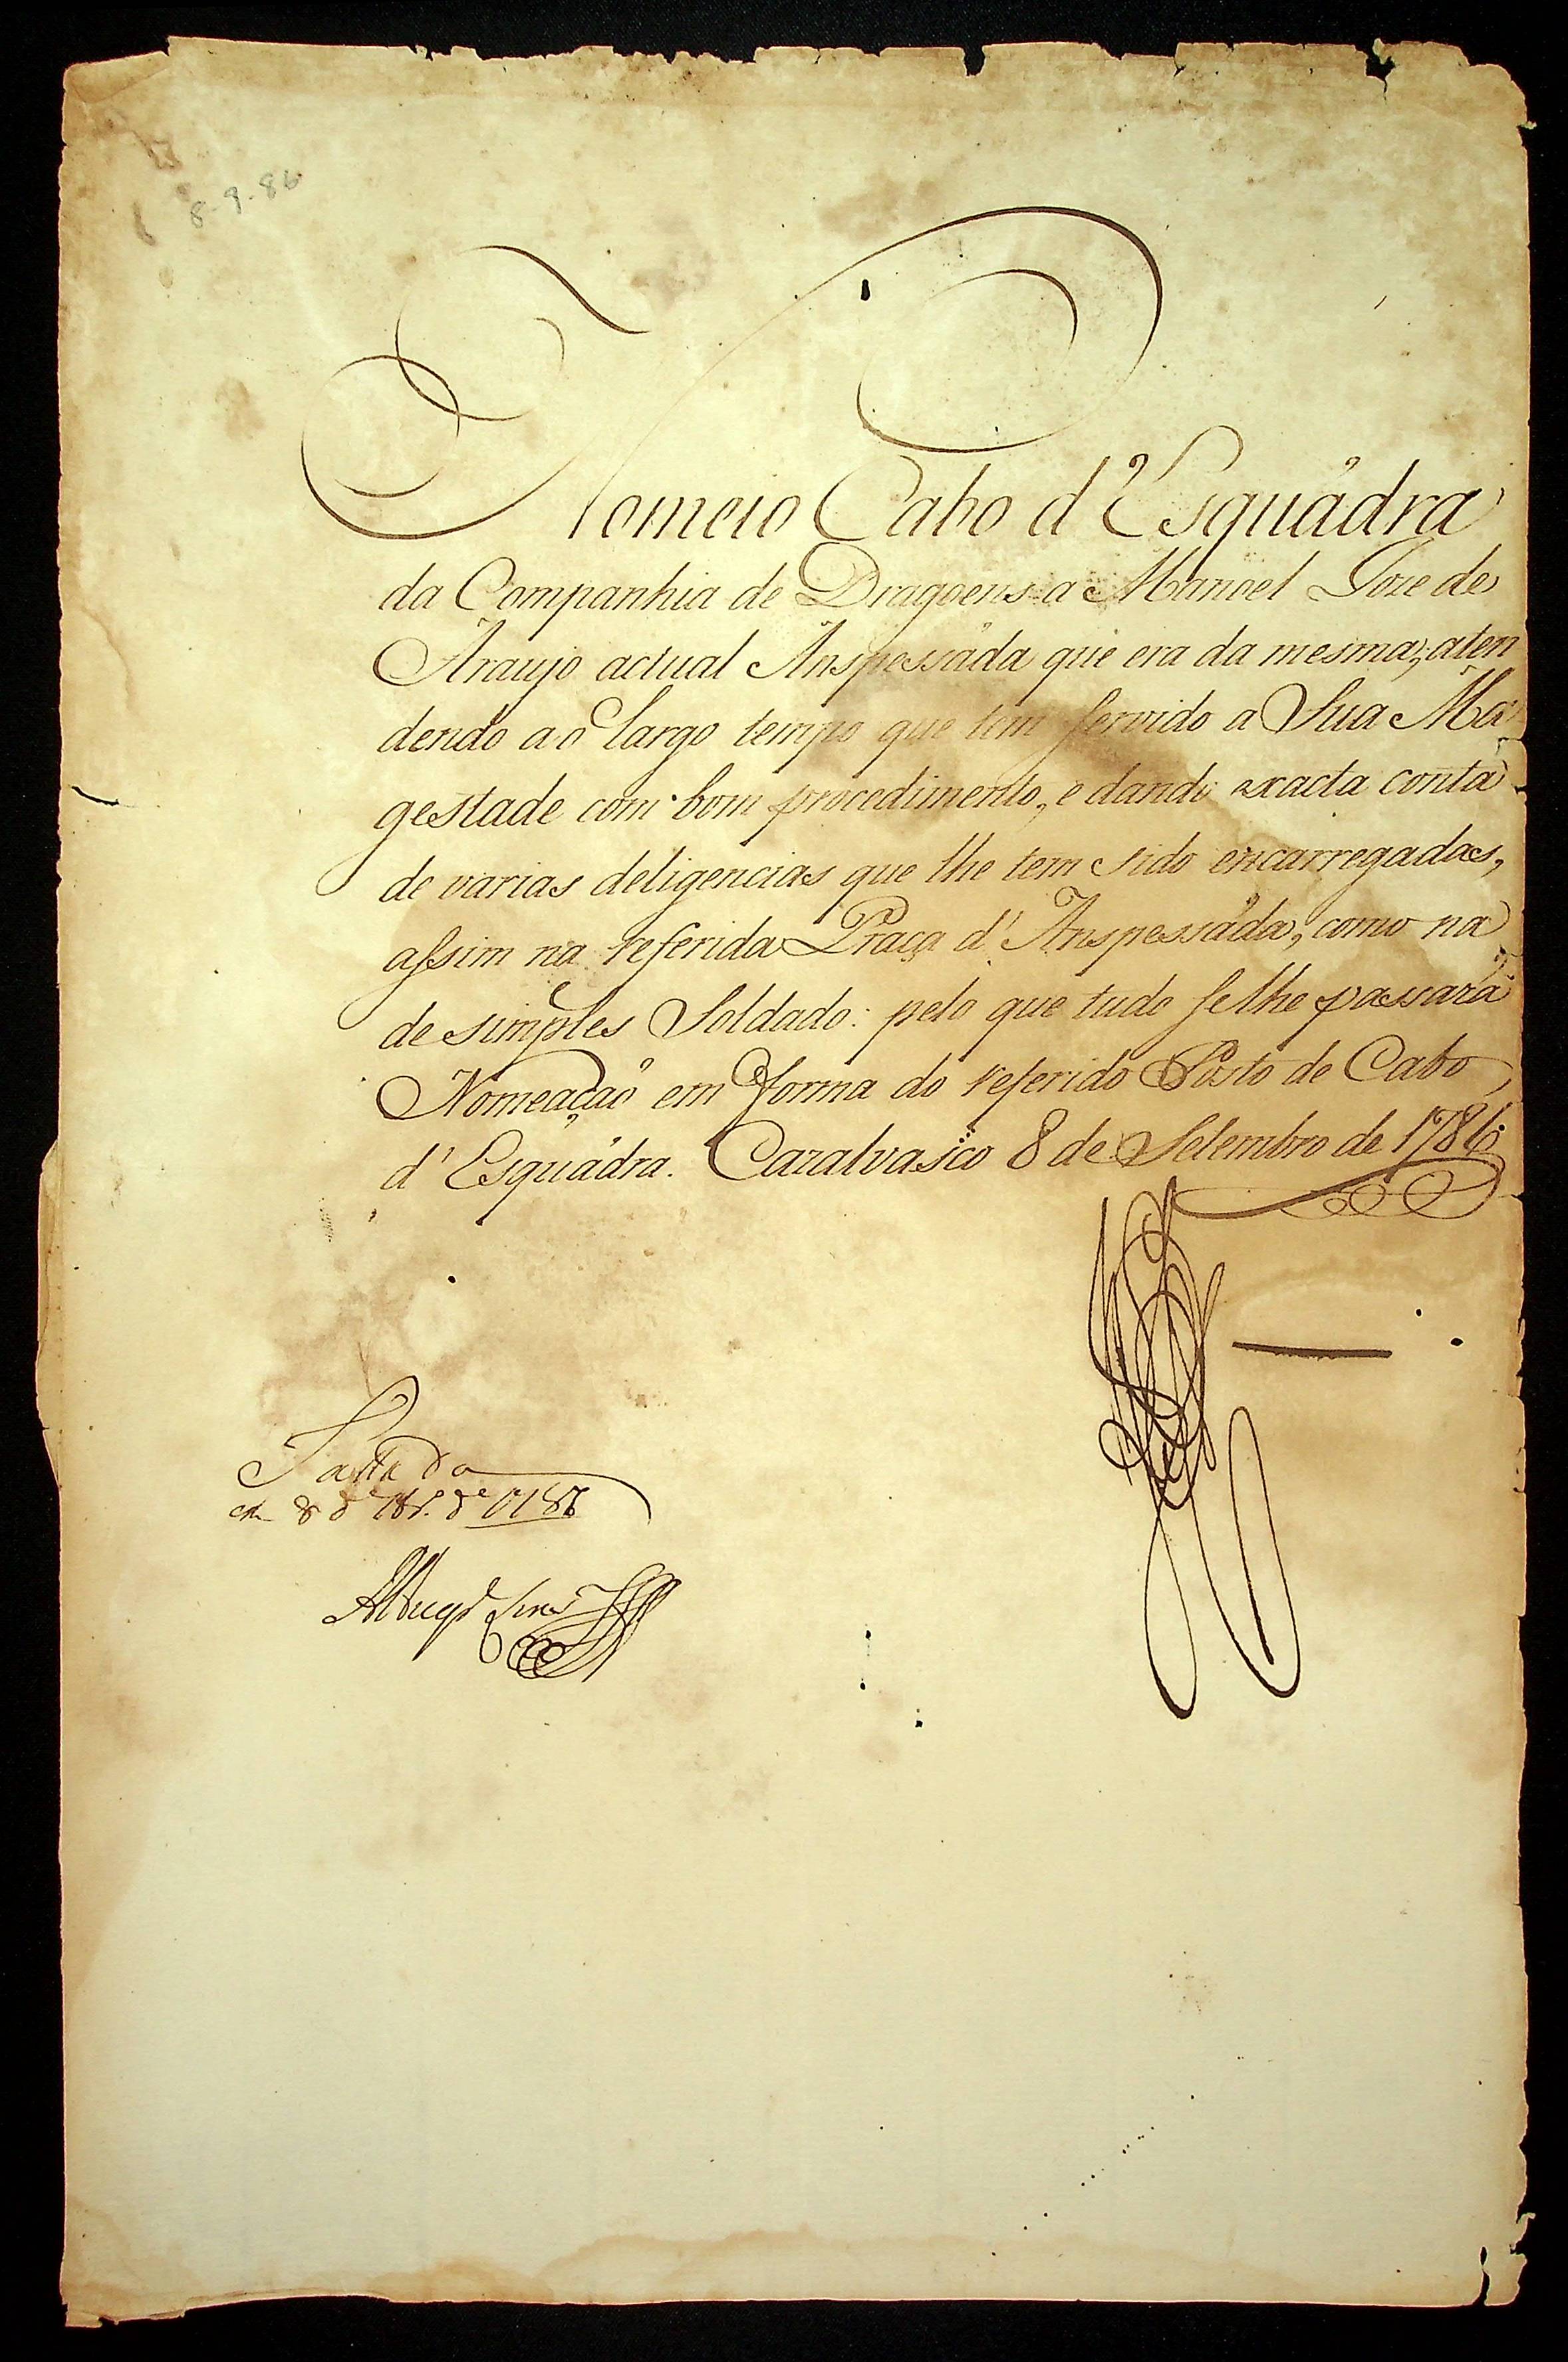 8-9-86
Nomeio Cabo d'Esquádra
da Companhia de Dragoens a Manoel Joze de
Araujo actual Anspessáda que era da mesma; aten
dendo ao largo tempo que tem servido a Sua Ma
gestade com bom procedimento, e dando exacta conta
de varias deligencias que lhe tem sido encarregadas,
assim na referida Praça d'Anspessáda, como na
de simples Soldado: pelo que tudo se lhe passará
Nomeação em forma do referido Posto de Cabo
d'Esquádra. Cazalvasco 8 de Setembro de 1786.
em 8 de 7br.º de 1786